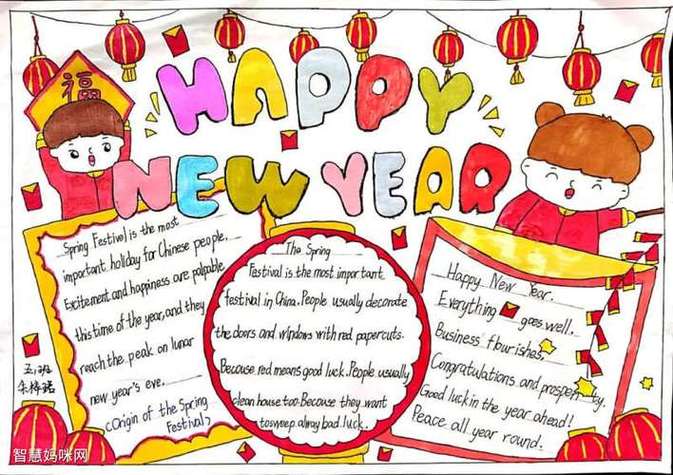 福
HAPPY
NEW YEAR
Spring Festival is the most
important holiday for Chinese people.
Excitement and happiness are palpable
this time of the year, and they
reach the peak on lunar
new year's eve.
(Origin of the Spring
Festival)
The Spring
Festival is the most important
festival in China. People usually decorate
the doors and windows with red papercuts.
Because red means good luck. People usually
clean house too. Because they want
to sweep alway bad luck.
Happy New Year.
Everything goes well.
Business flourishes.
Congratulations and prosperity.
Good luck in the year ahead!
Peace all year round.
智慧妈咪网